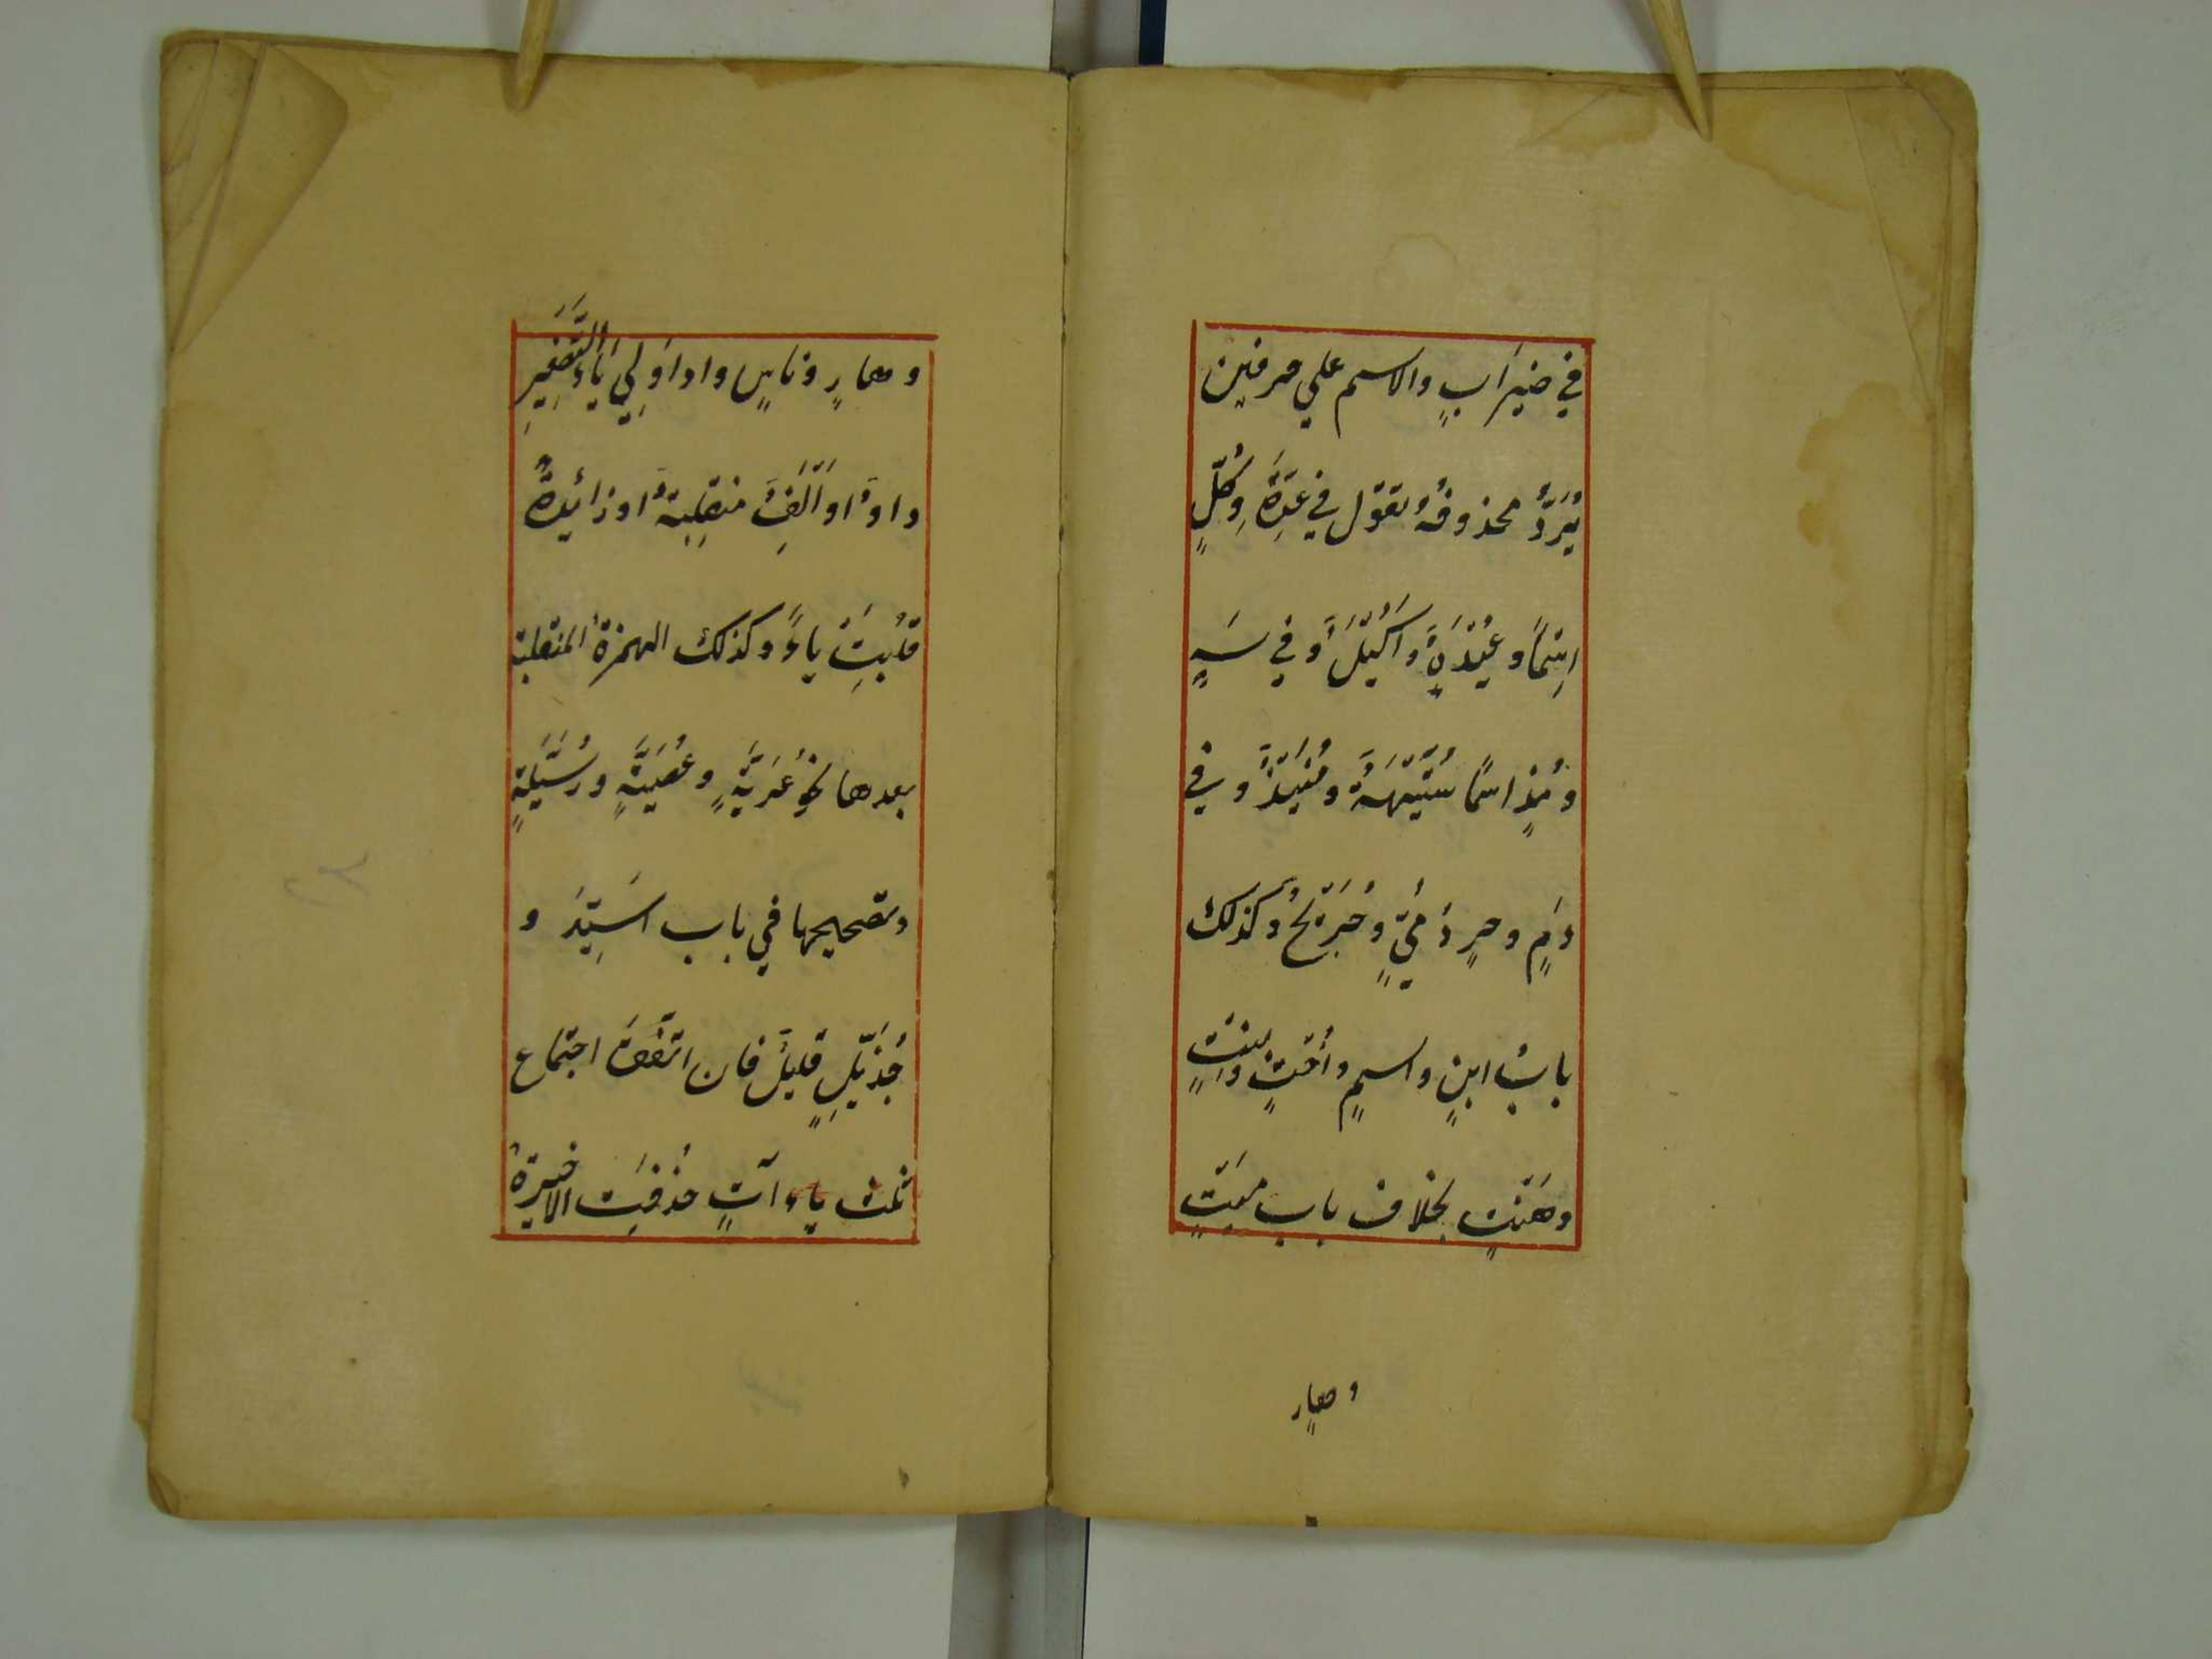 في ضيرابٍ والاسم علي حرفين
يُرَدُّ محذوفُهُ تقول في عِدَةٍ وكُلٍ
اِسْمًا وُعَيْدَةٍ وَاُكَيْلٍ وفي سَهٍ
ومُذٍ اسمًا سُتَيْهَةٌ ومُنَيْذٌ وفي
دَمٍ وحِرٍ دُمَيٍّ وحُرَيْحٌ وكذلك
بابُ ابنٍ واسمٍ واُختٍ وبنتٍ
وهَنْتٍ بخلاف باب ميتٍ
وهارٍ
وهارٍ وناسٍ واذا وَلِيَ ياءَ التَّصْغِيرِ
واوٌ او اَلِفٌ منقلِبةٌ او زائدةٌ
قلبت ياءً وكذلك الهمزة المنقلبة
بعدها نحو عُرَيَّةٍ وعُصَيَّةٍ ورُسَيِّلَةٍ
وتصحيحها في باب اُسَيِّدَ و
جُدَيِّلٍ قليلٌ فان اتّفقَ اجتماع
ثلث ياءاتٍ حُذفَت الاخيرةُ